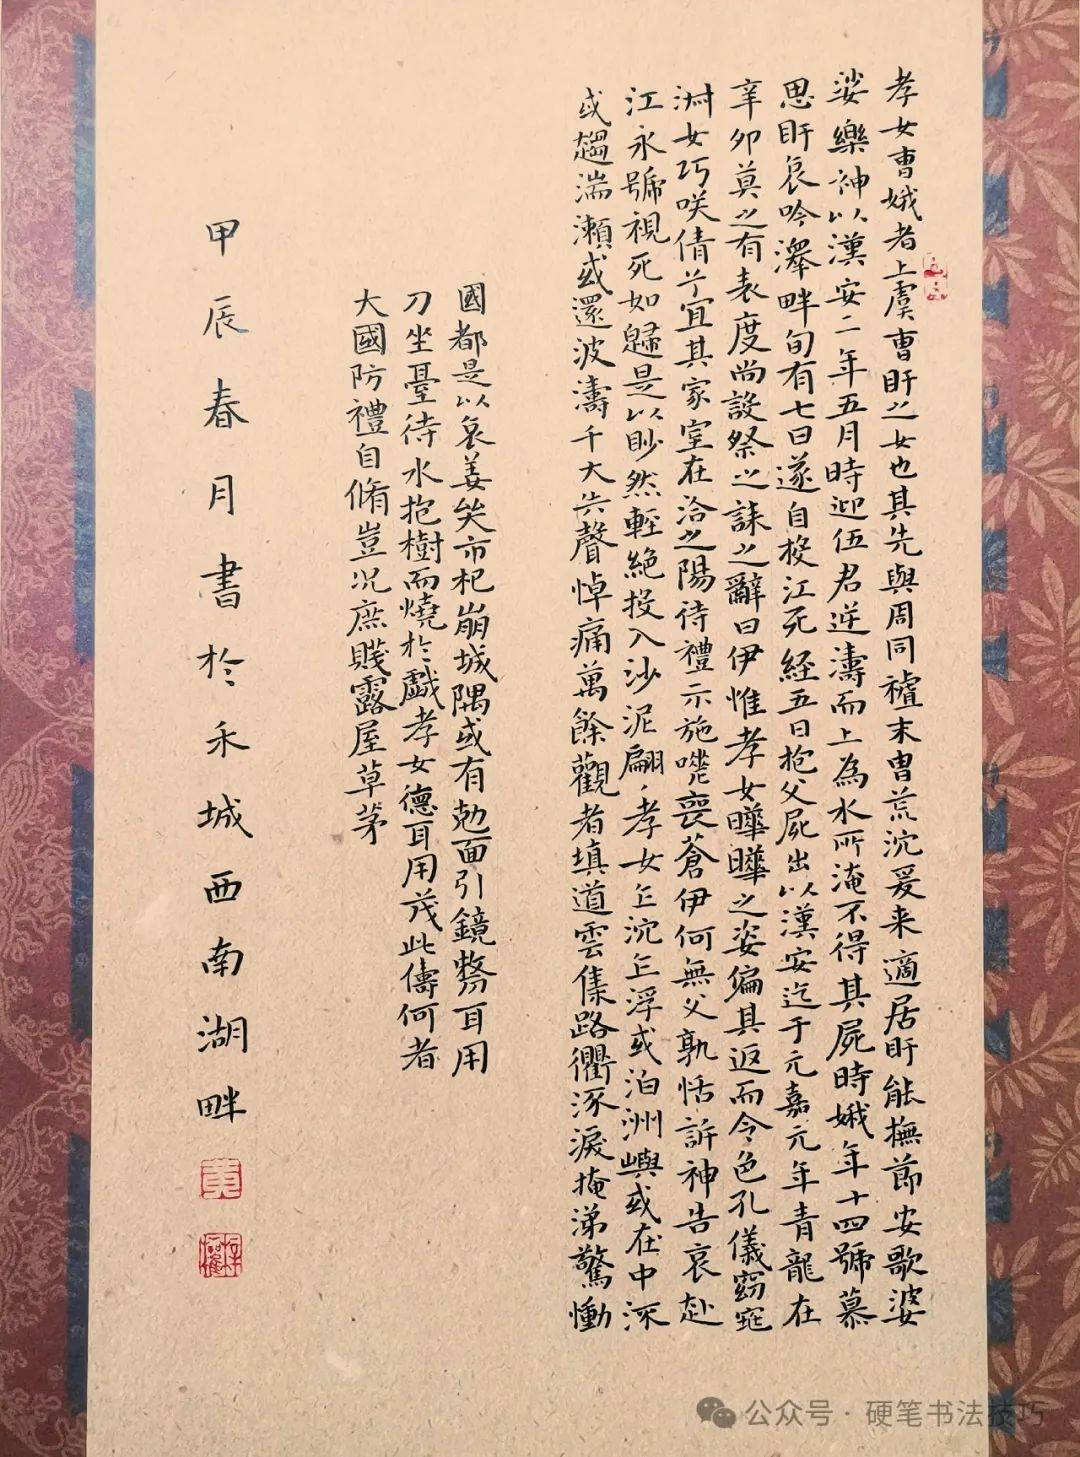 孝女曹娥者上虞曹盱之女也其先與周同禮末冑荒沉爰来適居盱能撫節安歌婆
娑樂神以漢安二年五月時迎伍君逆濤而上為水所淹不得其屍時娥年十四號慕
思盱哀吟澤畔旬有七日遂自投江死経五日抱父屍出以漢安迄于元嘉元年青龍在
辛卯莫之有表度尚設祭之誄之辭曰伊惟孝女曄曄之姿偏其返而令色孔儀窈窕
淑女巧咲倩兮宜其家室在洽之陽待禮未施嗟喪蒼伊何無父孰怙訴神告哀赴
江永號視死如歸是以眇然輕絶投入沙泥翩、孝女乍沉乍浮或泊洲嶼或在中流
或趨湍瀬或還波濤千夫失聲悼痛萬餘觀者填道雲集路衢流淚掩涕驚慟
國都是以哀姜哭市杞崩城隅或有勊面引鏡剺耳用
刀坐臺待水抱樹而燒於戯孝女德耳用茂此儔何者
大國防禮自脩豈况庶賤露屋草茅
甲辰春月書於禾城西南湖畔
公众号·硬笔书法技巧